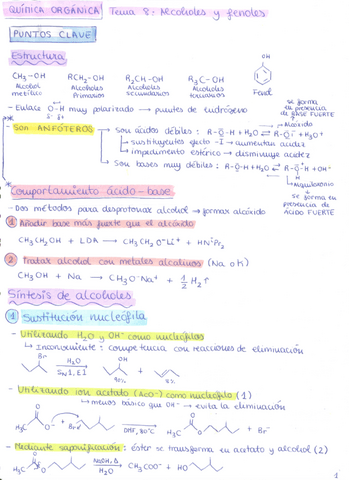 QUÍMICA ORGÁNICA Tema 8: Alcoholes y fenoles
PUNTOS CLAVE
Estructura
CH3-OH RCH2-OH R2CH-OH R3C-OH OH
Alcohol metílico Alcoholes primarios Alcoholes secundarios Alcoholes terciarios Fenol
- Enlace O-H muy polarizado → puentes de hidrógeno
δ- δ+
se forma en presencia de BASE FUERTE
- Son ANFÓTEROS → Son ácidos débiles: R-O-H + H2O ⇌ R-O⁻ + H3O+
Alcóxido
↳ sustituyentes efecto -I → aumentan acidez
↳ impedimento estérico → disminuye acidez
→ Son bases muy débiles: R-O-H + H2O ⇌ R-O-H + OH-
H
Alquiloxonio
se forma en presencia de ÁCIDO FUERTE
Comportamiento ácido-base
- Dos métodos para desprotonar alcohol → formar alcóxido
1 Añadir base más fuerte que el alcóxido
CH3CH2OH + LDA → CH3CH2O-Li+ + HNiPr2
2 Tratar alcohol con metales alcalinos (Na o K)
CH3OH + Na → CH3O-Na+ + 1/2 H2↑
Síntesis de alcoholes
1 Sustitución nucleófila
- Utilizando H2O y OH- como nucleófilos
↳ Inconveniente: competencia con reacciones de eliminación
Br H2O OH
SN1, E1 +
- Utilizando ion acetato (AcO-) como nucleófilo (1)
↳ menos básico que OH- → evita la eliminación
H3C O- + Br DMF, 80°C H3C O + Br-
- Mediante saponificación: éster se transforma en acetato y alcohol (2)
H3C O NaOH, Δ H2O CH3COO- + HO
1